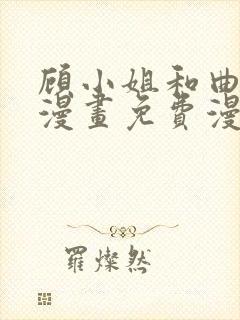 顾小姐和曲
漫畫免費漫
羅燦然